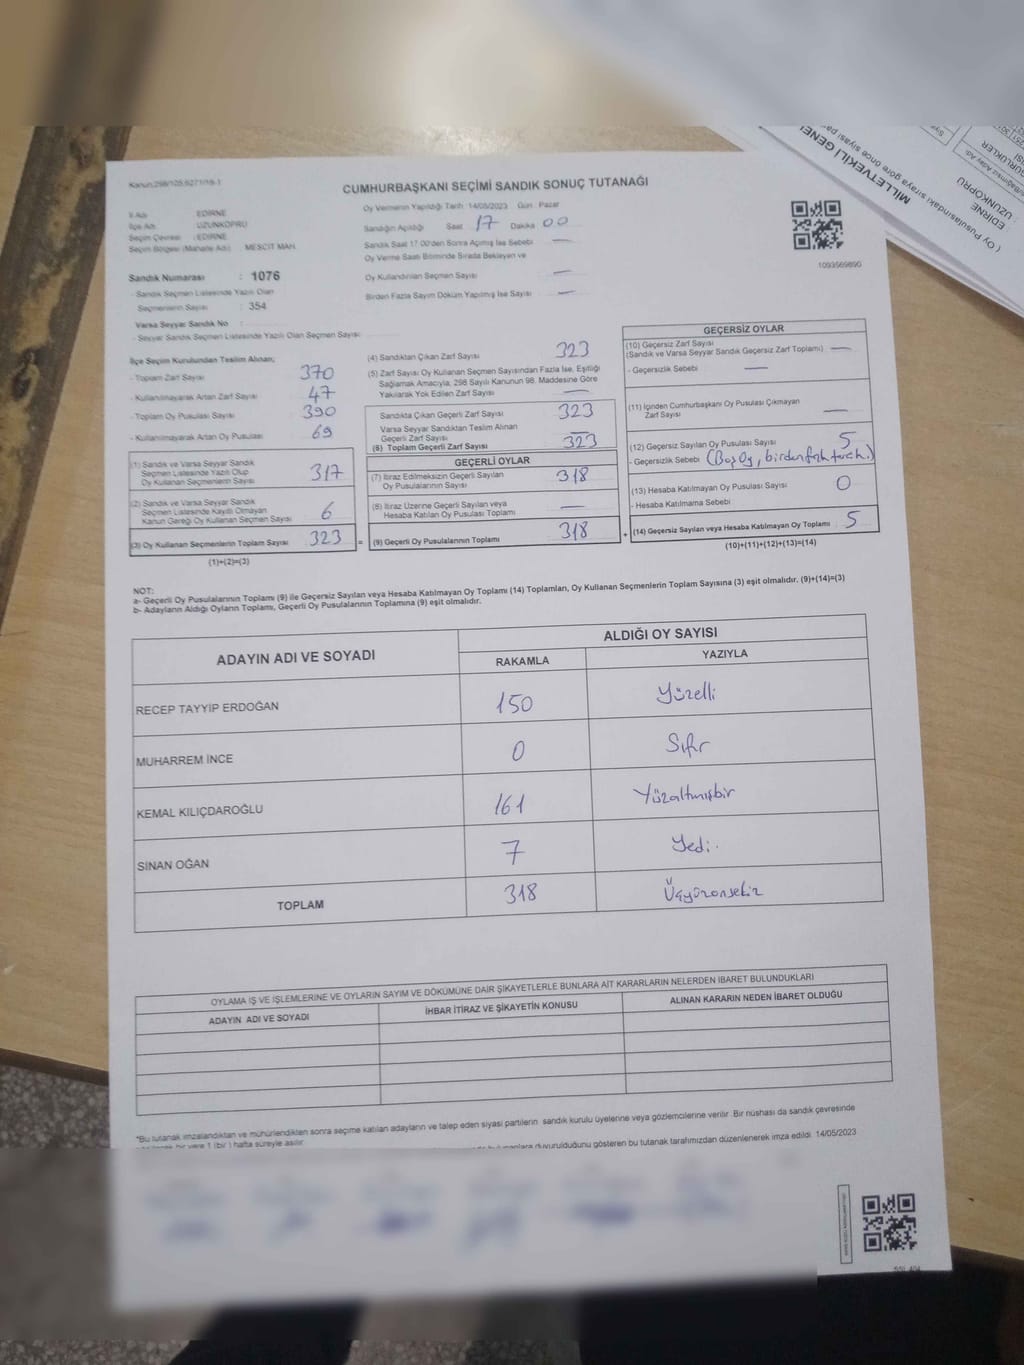 Kanun:298/105,6271/19-1
CUMHURBAŞKANI SEÇİMİ SANDIK SONUÇ TUTANAĞI
İl Adı : EDİRNE
İlçe Adı : UZUNKÖPRÜ
Seçim Çevresi : EDİRNE
Seçim Bölgesi (Mahalle Adı) : MESCİT MAH.
Sandık Numarası : 1076
- Sandık Seçmen Listesinde Yazılı Olan
Seçmenlerin Sayısı : 354
Varsa Seyyar Sandık No :
- Seyyar Sandık Seçmen Listesinde Yazılı Olan Seçmen Sayısı:
Oy Vermenin Yapıldığı Tarih: 14/05/2023 Gün : Pazar
Sandığın Açıldığı Saat 17 Dakika 00
Sandık Saat 17.00'den Sonra Açılmış İse Sebebi —
Oy Verme Saati Bitiminde Sırada Bekleyen ve
Oy Kullandırılan Seçmen Sayısı —
Birden Fazla Sayım Döküm Yapılmış İse Sayısı —
1093569890
İlçe Seçim Kurulundan Teslim Alınan;
- Toplam Zarf Sayısı 370
- Kullanılmayarak Artan Zarf Sayısı 47
- Toplam Oy Pusulası Sayısı 390
- Kullanılmayarak Artan Oy Pusulası 69
(1) Sandık ve Varsa Seyyar Sandık
Seçmen Listesinde Yazılı Olup
Oy Kullanan Seçmenlerin Sayısı 317
(2) Sandık ve Varsa Seyyar Sandık
Seçmen Listesinde Kayıtlı Olmayan
Kanun Gereği Oy Kullanan Seçmen Sayısı 6
(3) Oy Kullanan Seçmenlerin Toplam Sayısı 323
(1)+(2)=(3)
(4) Sandıktan Çıkan Zarf Sayısı 323
(5) Zarf Sayısı Oy Kullanan Seçmen Sayısından Fazla İse, Eşitliği
Sağlamak Amacıyla, 298 Sayılı Kanunun 98. Maddesine Göre
Yakılarak Yok Edilen Zarf Sayısı —
Sandıkta Çıkan Geçerli Zarf Sayısı 323
Varsa Seyyar Sandıktan Teslim Alınan
Geçerli Zarf Sayısı —
(6) Toplam Geçerli Zarf Sayısı 323
GEÇERLİ OYLAR
(7) İtiraz Edilmeksizin Geçerli Sayılan
Oy Pusulalarının Sayısı 318
(8) İtiraz Üzerine Geçerli Sayılan veya
Hesaba Katılan Oy Pusulası Toplamı —
= (9) Geçerli Oy Pusulalarının Toplamı 318
GEÇERSİZ OYLAR
(10) Geçersiz Zarf Sayısı
(Sandık ve Varsa Seyyar Sandık Geçersiz Zarf Toplamı) —
- Geçersizlik Sebebi —
(11) İçinden Cumhurbaşkanı Oy Pusulası Çıkmayan
Zarf Sayısı —
(12) Geçersiz Sayılan Oy Pusulası Sayısı 5
- Geçersizlik Sebebi (Boş Oy, birden fazla tercih)
(13) Hesaba Katılmayan Oy Pusulası Sayısı 0
- Hesaba Katılmama Sebebi
+ (14) Geçersiz Sayılan veya Hesaba Katılmayan Oy Toplamı 5
(10)+(11)+(12)+(13)=(14)
NOT:
a- Geçerli Oy Pusulalarının Toplamı (9) ile Geçersiz Sayılan veya Hesaba Katılmayan Oy Toplamı (14) Toplamları, Oy Kullanan Seçmenlerin Toplam Sayısına (3) eşit olmalıdır. (9)+(14)=(3)
b- Adayların Aldığı Oyların Toplamı, Geçerli Oy Pusulalarının Toplamına (9) eşit olmalıdır.
ADAYIN ADI VE SOYADI
ALDIĞI OY SAYISI
RAKAMLA YAZIYLA
RECEP TAYYİP ERDOĞAN 150 Yüzelli
MUHARREM İNCE 0 Sıfır
KEMAL KILIÇDAROĞLU 161 Yüzaltmışbir
SİNAN OĞAN 7 Yedi.
TOPLAM 318 Üçyüzonsekiz
OYLAMA İŞ VE İŞLEMLERİNE VE OYLARIN SAYIM VE DÖKÜMÜNE DAİR ŞİKAYETLERLE BUNLARA AİT KARARLARIN NELERDEN İBARET BULUNDUKLARI
ADAYIN ADI VE SOYADI İHBAR İTİRAZ VE ŞİKAYETİN KONUSU ALINAN KARARIN NEDEN İBARET OLDUĞU
*Bu tutanak imzalandıktan ve mühürlendikten sonra seçime katılan adayların ve talep eden siyasi partilerin sandık kurulu üyelerine veya gözlemcilerine verilir. Bir nüshası da sandık çevresinde
bir yere 1 (bir) hafta süreyle asılır.
duyurulduğunu gösteren bu tutanak tarafımızdan düzenlenerek imza edildi. 14/05/2023
MİLLETVEKİLİ GENEL
EDİRNE
UZUNKÖPRÜ
( Oy Pusulasındaki sıraya göre önce siyasi